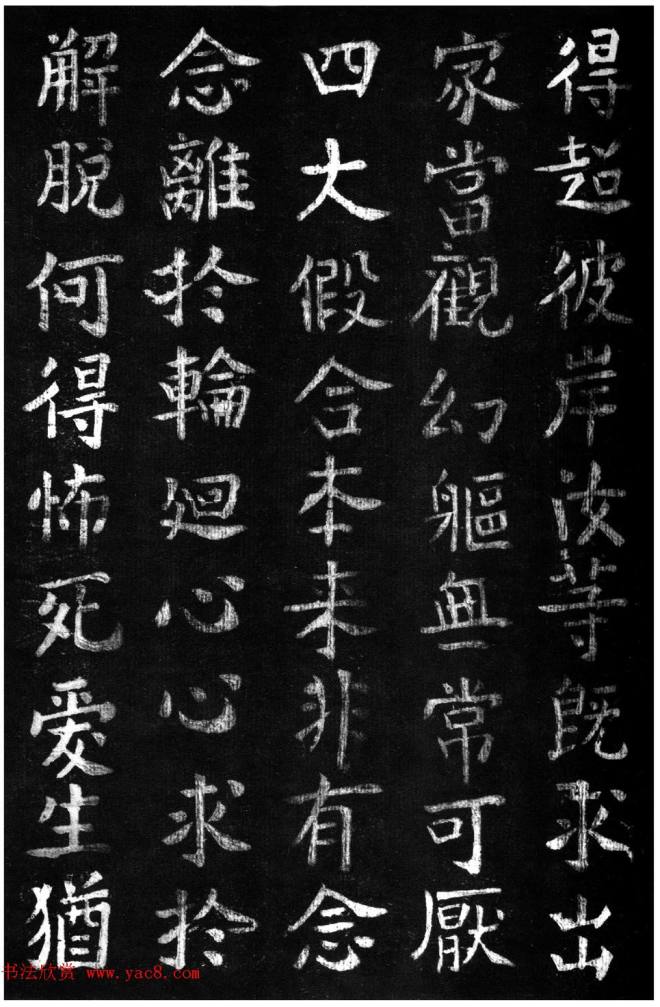 得超彼岸汝等既求出
家當觀幻軀無常可厭
四大假合本来非有念
念離扵輪廻心心求扵
解脱何得怖死愛生猶
书法欣赏 www.yac8.com